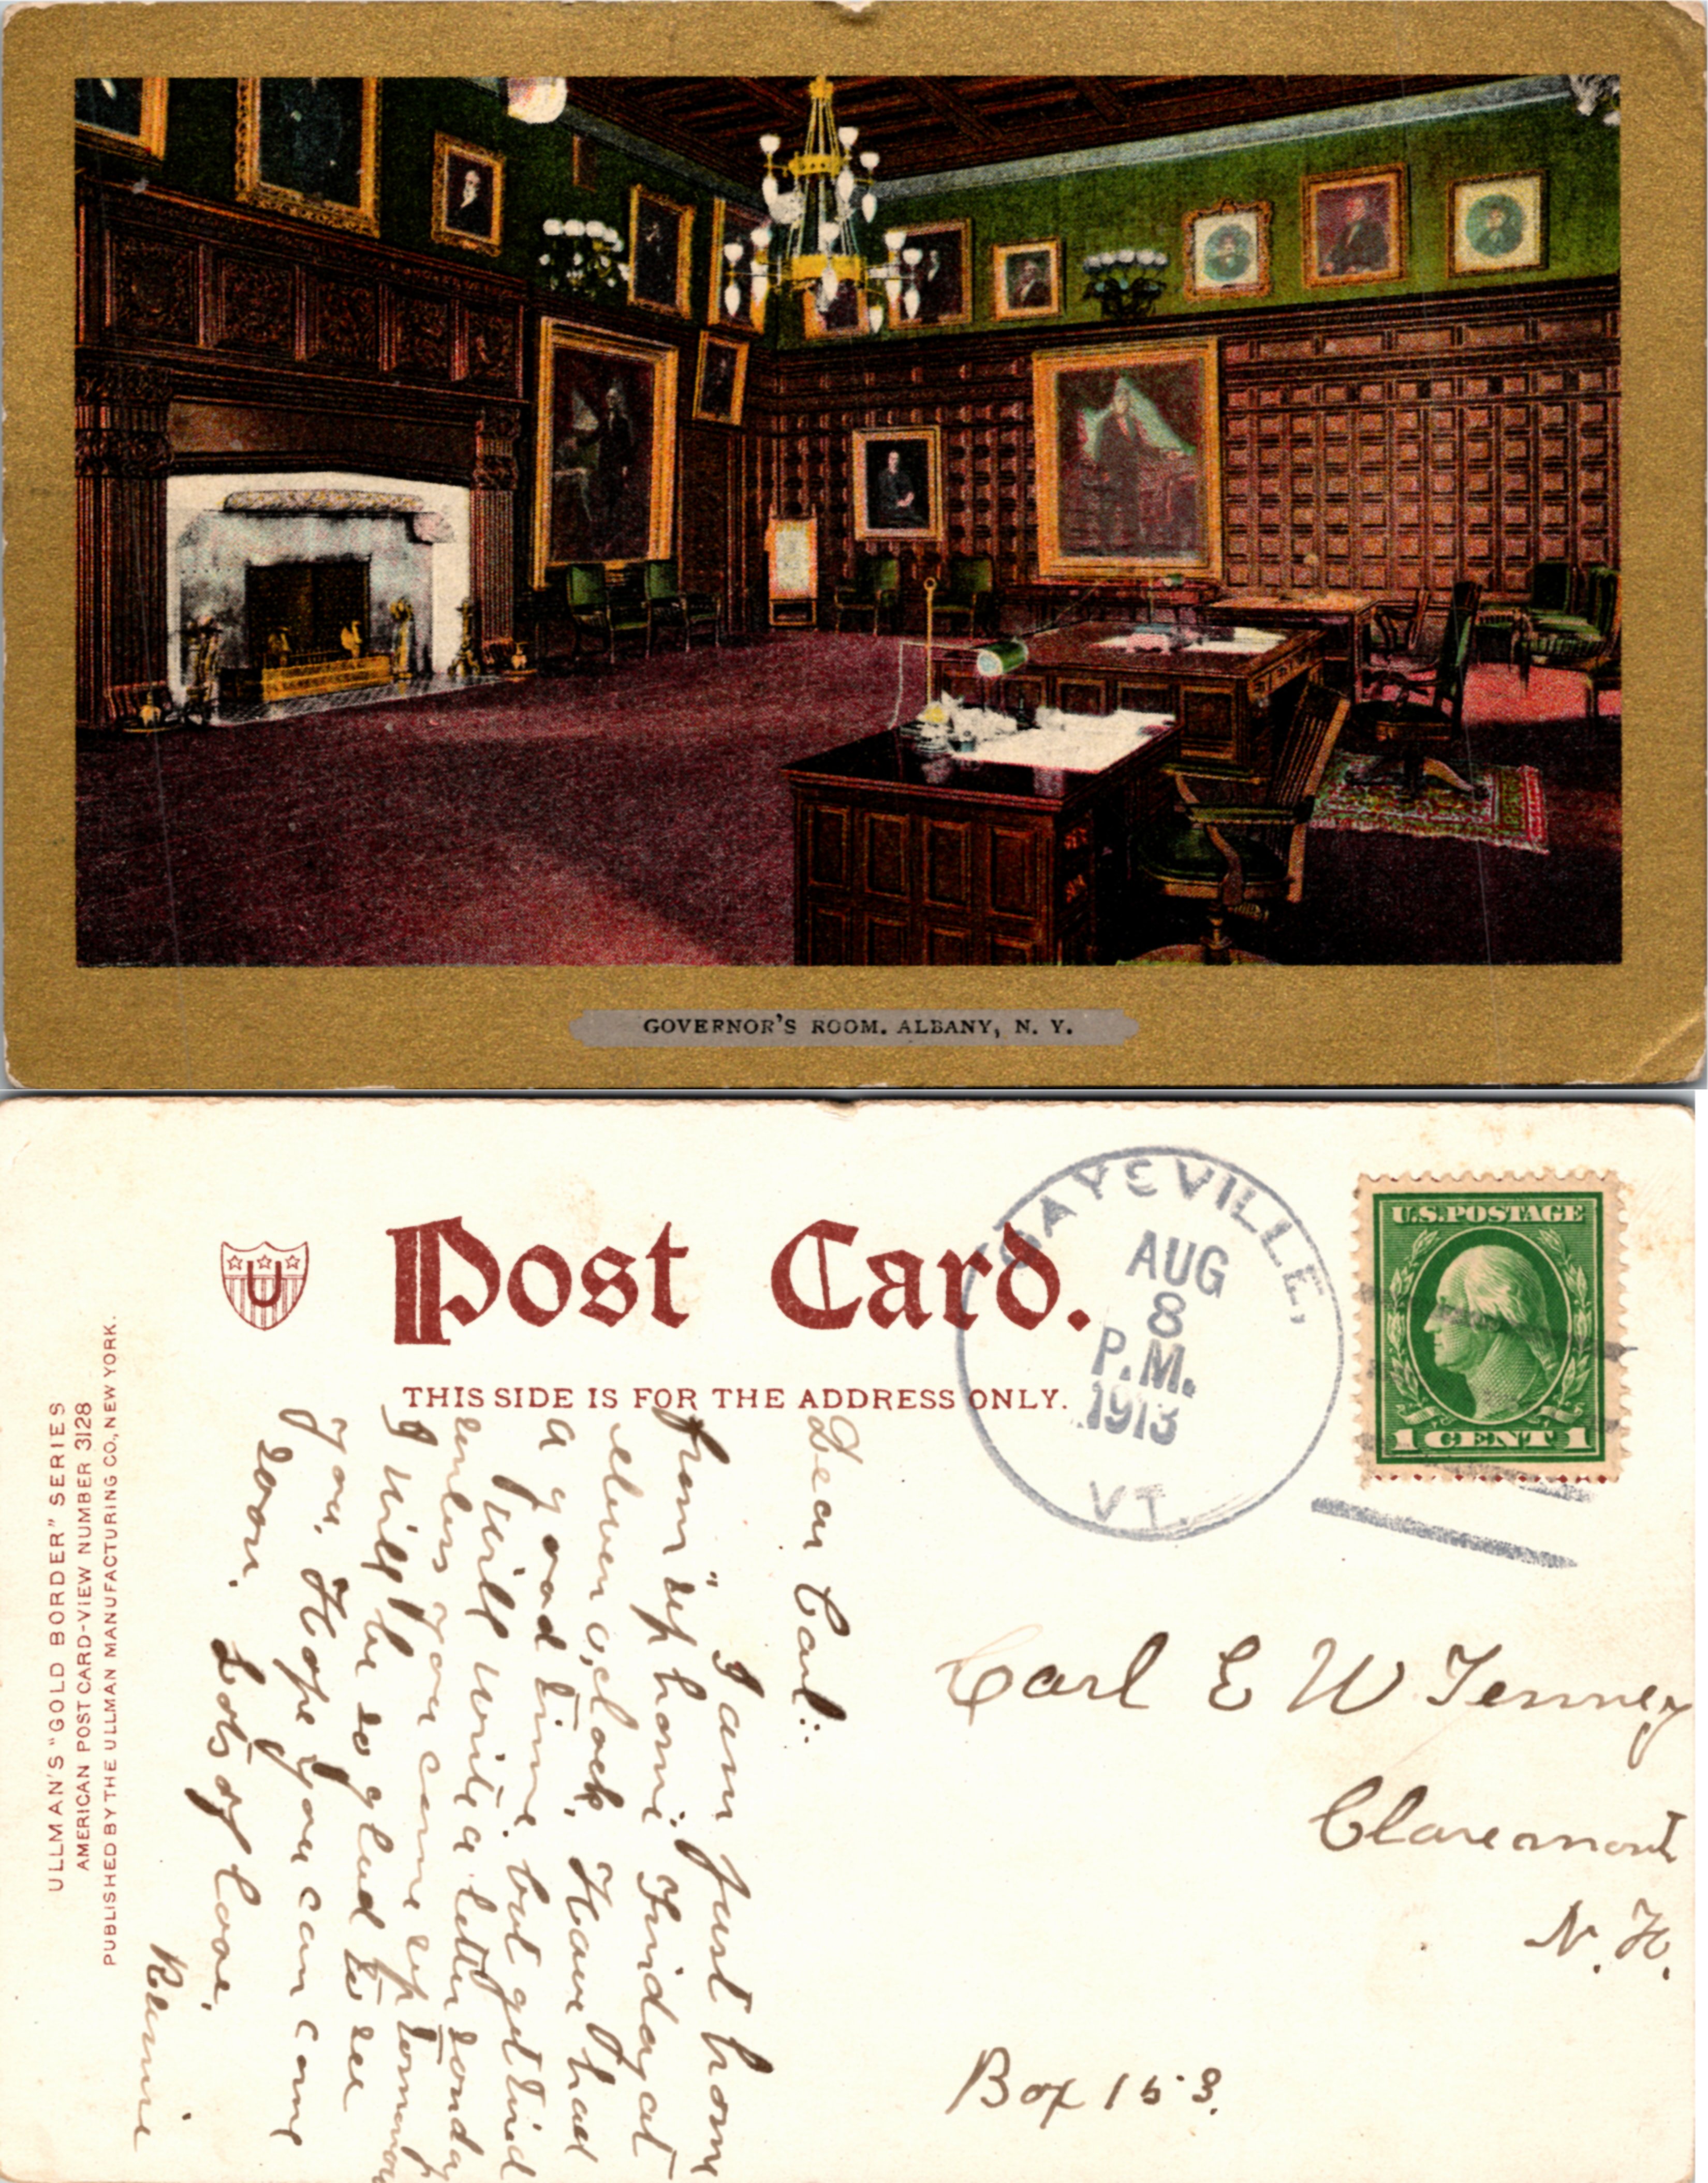 GOVERNOR'S ROOM. ALBANY, N. Y.
U
Post Card.
THIS SIDE IS FOR THE ADDRESS ONLY.
GAYSVILLE,
AUG
8
P.M.
1913
VT.
U.S.POSTAGE
1 CENT 1
ULLMAN'S "GOLD BORDER" SERIES
AMERICAN POST CARD-VIEW NUMBER 3128
PUBLISHED BY THE ULLMAN MANUFACTURING CO., NEW YORK.
Dear Carl:
I am just home
from "up home". Friday at
eleven o,clock. Have had
a good time but get tired
Will write a letter sonday
unless you come up tomorrow
I will be so glad to see
you. Hope you can come
soon.
Lots of love,
Carl E W Tenney
Claremont
N. H.
Box 153.